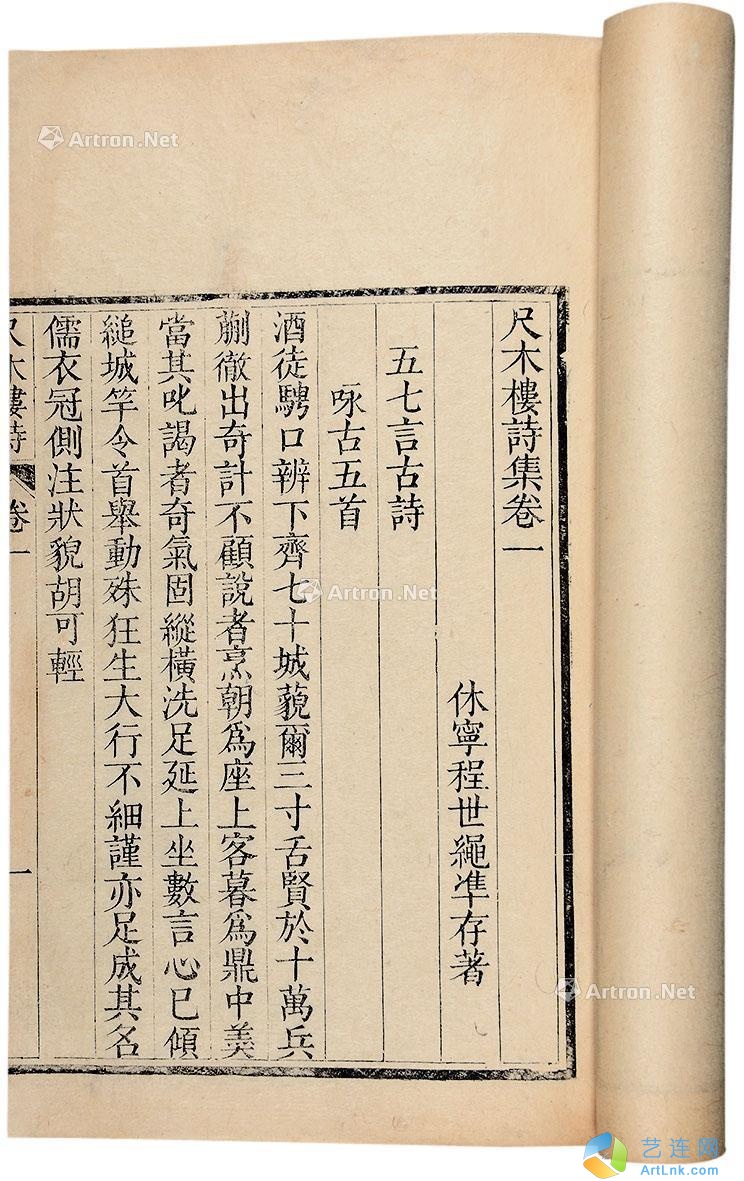 尺木樓詩集卷一
休寧程世繩準存著
五七言古詩
咏古五首
酒徒騁口辨下齊七十城藐爾三寸舌賢於十萬兵
蒯徹出奇計不顧說者烹朝爲座上客暮爲鼎中羮
當其叱謁者奇氣固縱橫洗足延上坐數言心已傾
縋城竿令首舉動殊狂生大行不細謹亦足成其名
儒衣冠側注狀貌胡可輕
尺木樓詩 卷一 一
Artron.Net
Artron.Net
Artron.Net
艺连网
ArtLnk.com